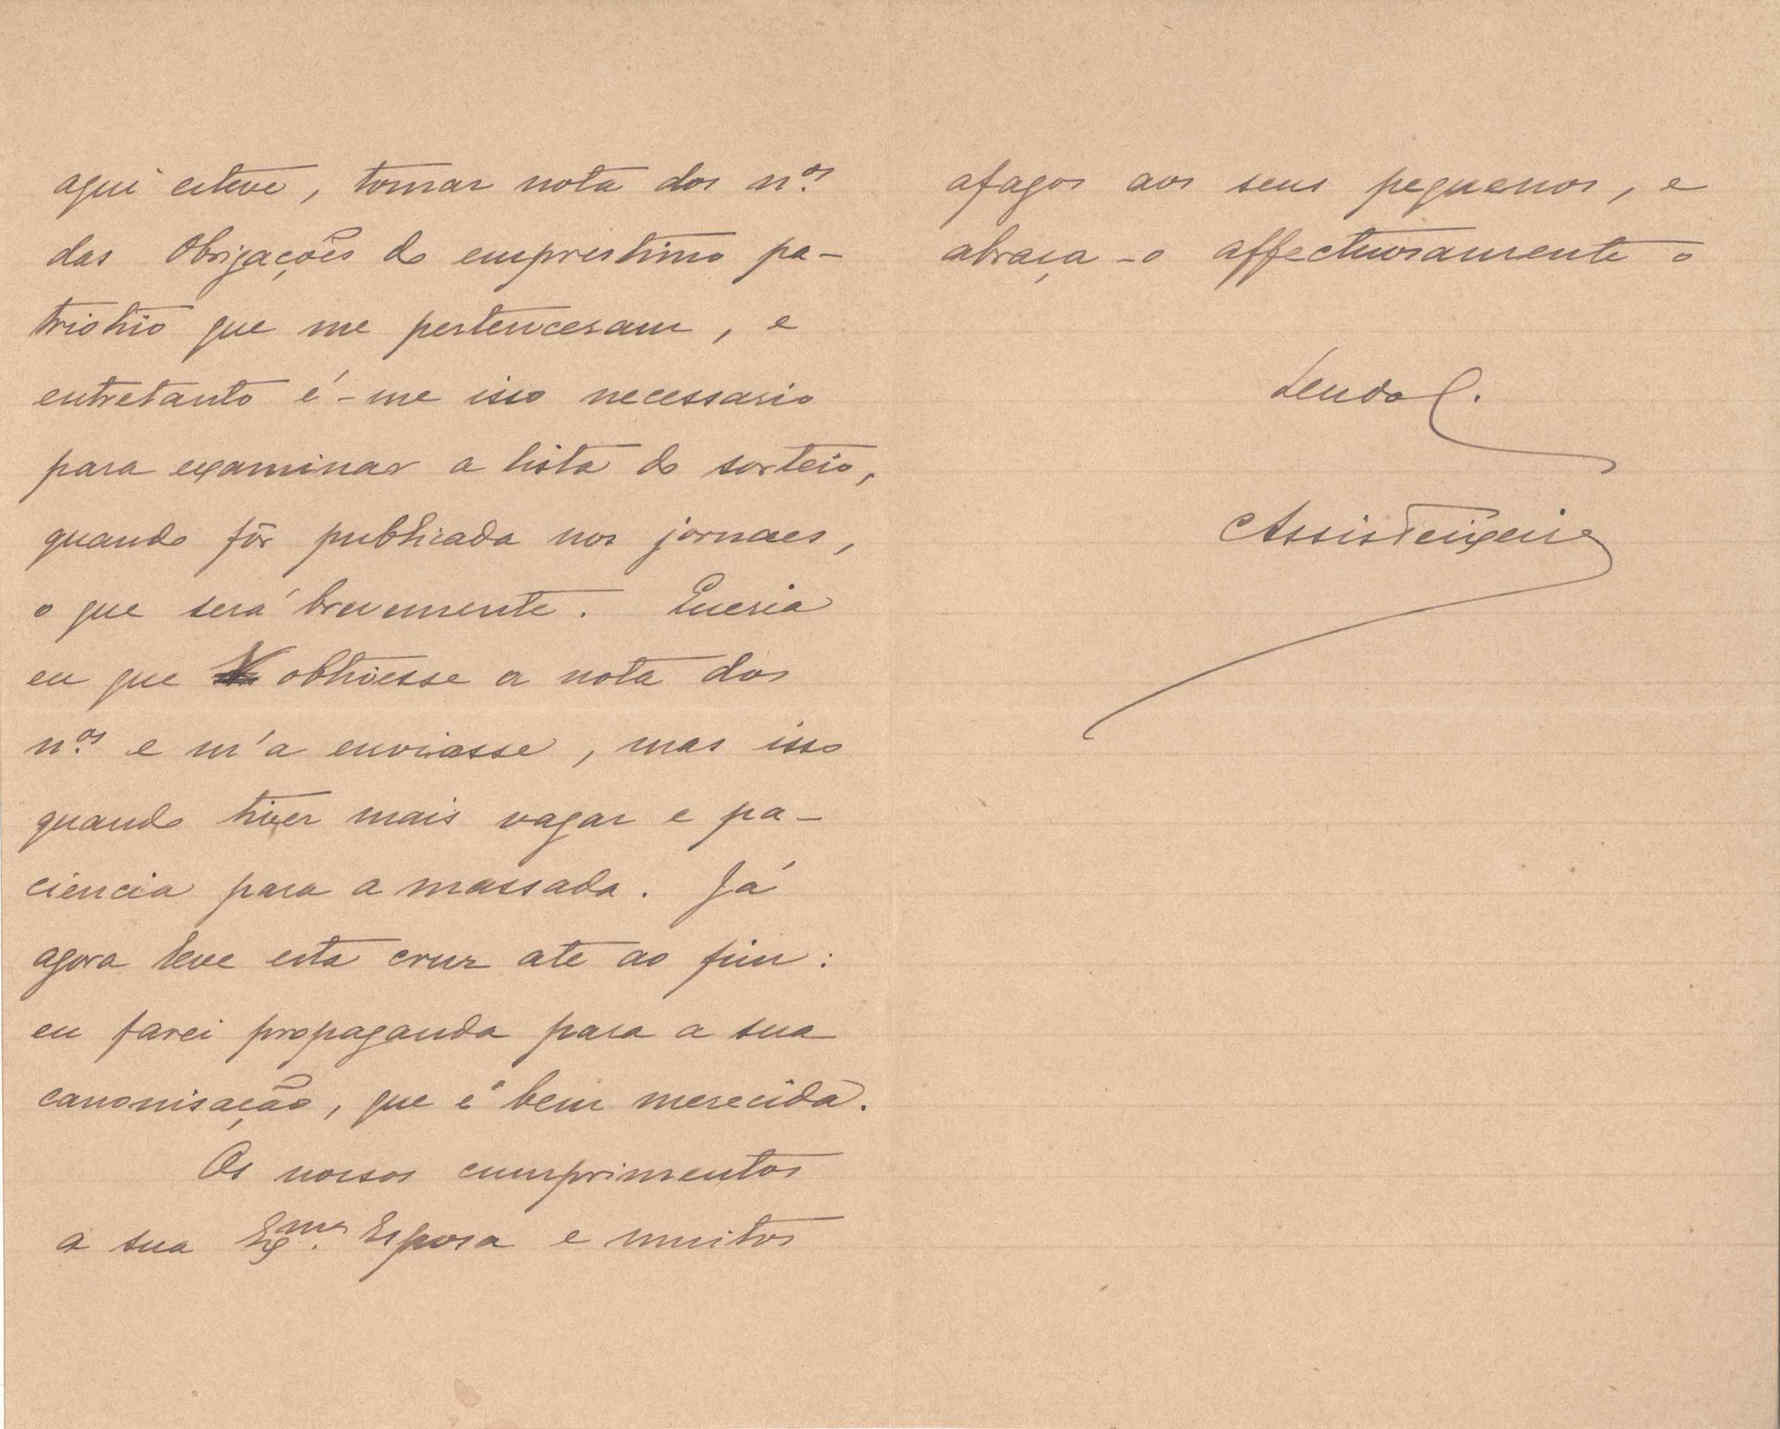 aqui esteve, tomar nota dos n.os
das Obrigações do emprestimo pa-
triotico que me pertenceram, e
entretanto é-me isso necessario
para examinar a lista do sorteio,
quando fôr publicada nos jornaes,
o que será brevemente. Queria
eu que obtivesse a nota dos
n.os e m'a enviasse, mas isso
quando tiver mais vagar e pa-
ciencia para a massada. Já
agora leve esta cruz até ao fim:
eu farei propaganda para a sua
canonisação, que é bem merecida.
Os nossos cumprimentos
a sua Exma. Esposa e muitos
afagos aos seus pequenos, e
abraça-o affectuosamente o
Assis Teixeira